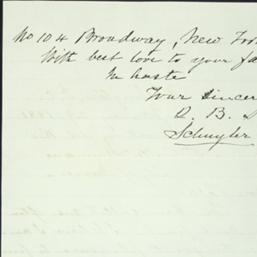 No 104 Broadway, New Yor
With best love to your fa
In haste
Your sincer
B.
Schuyler